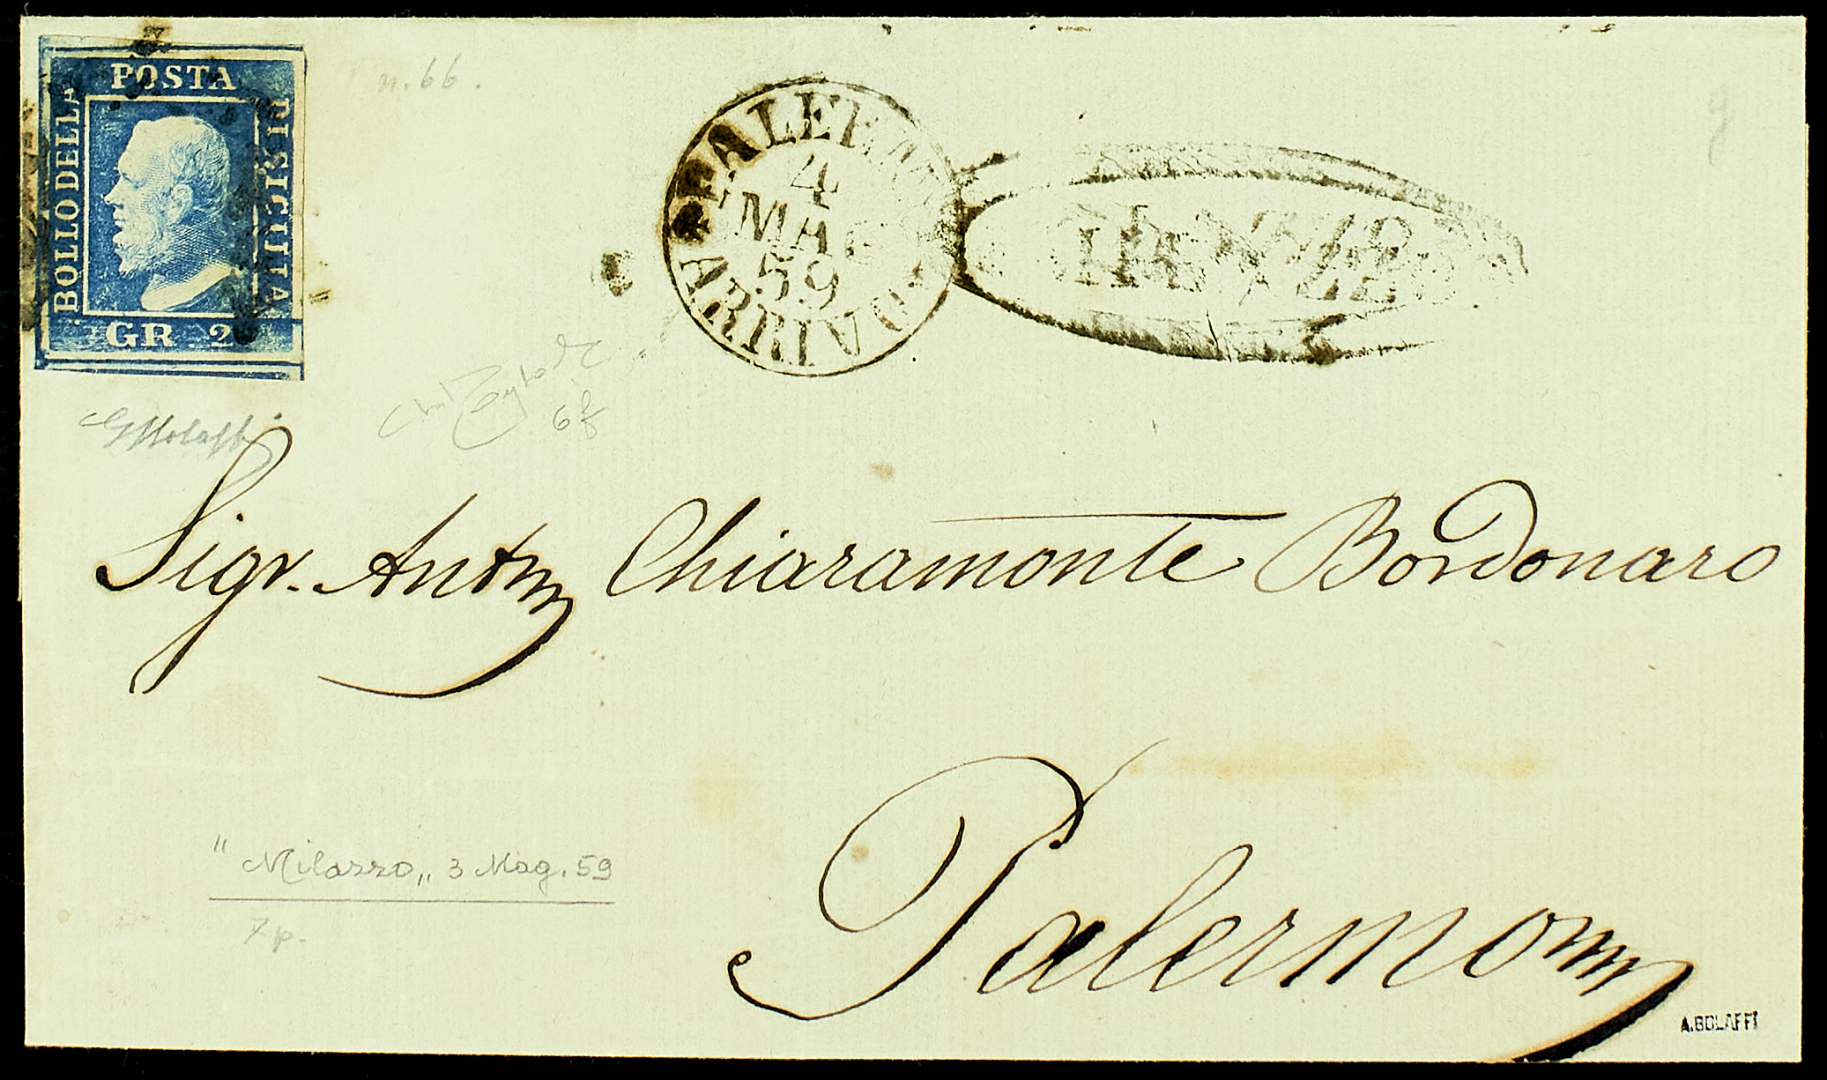 POSTA
BOLLO DELLA
DI SICILIA
GR 2
n. 66.
PALERMO
4
MAG
59
ARRIVO
6f
Sigr. Anto Chiaramonte Bordonaro
"Milazzo„ 3 Mag. 59
7 p.
Palermo
A. BOLAFFI